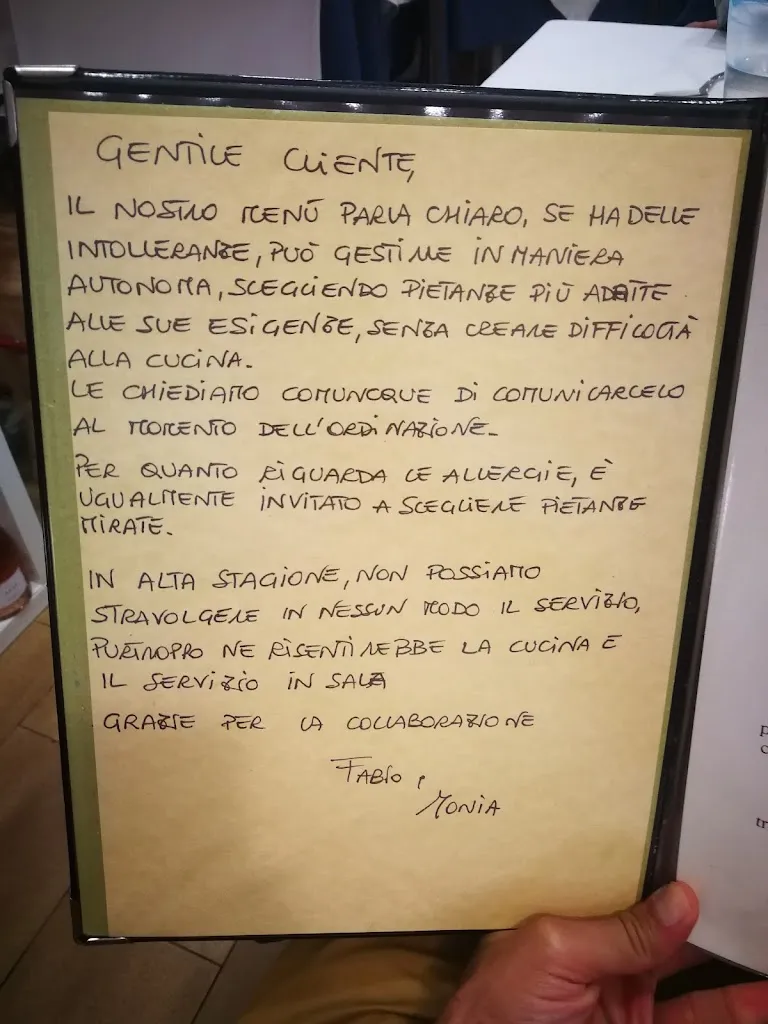 GENTILE CLIENTE,
IL NOSTRO MENÚ PARLA CHIARO, SE HA DELLE
INTOLLERANZE, PUÒ GESTIRLE IN MANIERA
AUTONOMA, SCEGLIENDO PIETANZE PIÙ ADATTE
ALLE SUE ESIGENZE, SENZA CREARE DIFFICOLTÀ
ALLA CUCINA.
LE CHIEDIAMO COMUNCQUE DI COMUNICARCELO
AL MOMENTO DELL'ORDINAZIONE.
PER QUANTO RIGUARDA LE ALLERGIE, È
UGUALMENTE INVITATO A SCEGLIERE PIETANZE
MIRATE.
IN ALTA STAGIONE, NON POSSIAMO
STRAVOLGERE IN NESSUN MODO IL SERVIZIO,
PURTROPPO NE RISENTIREBBE LA CUCINA E
IL SERVIZIO IN SALA
GRAZIE PER LA COLLABORAZIONE
FABIO,
MONIA